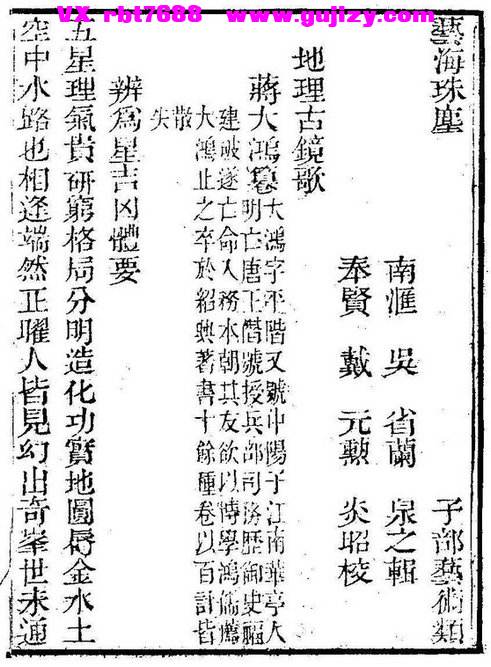 VX rbt7688 www.gujizy.com
藝海珠塵 子部藝術類
南滙 吳 省蘭 泉之輯
奉賢 戴 元 炎 昭校
地理古鏡歌
蔣大鴻 大鴻字平階又號中陽子江南華亭人
明亡唐王僭號授兵部司務歷御史福
建破遂亡命入務本朝其友欲以博學鴻儒薦
大鴻止之卒於紹興著書十餘種卷以百計皆
散
失
辨為星吉凶體要
五星理氣貴研窮格局分明造化功實地圓 金水土
空中水路也相逢端然正曜人皆見幻出奇峯世未通